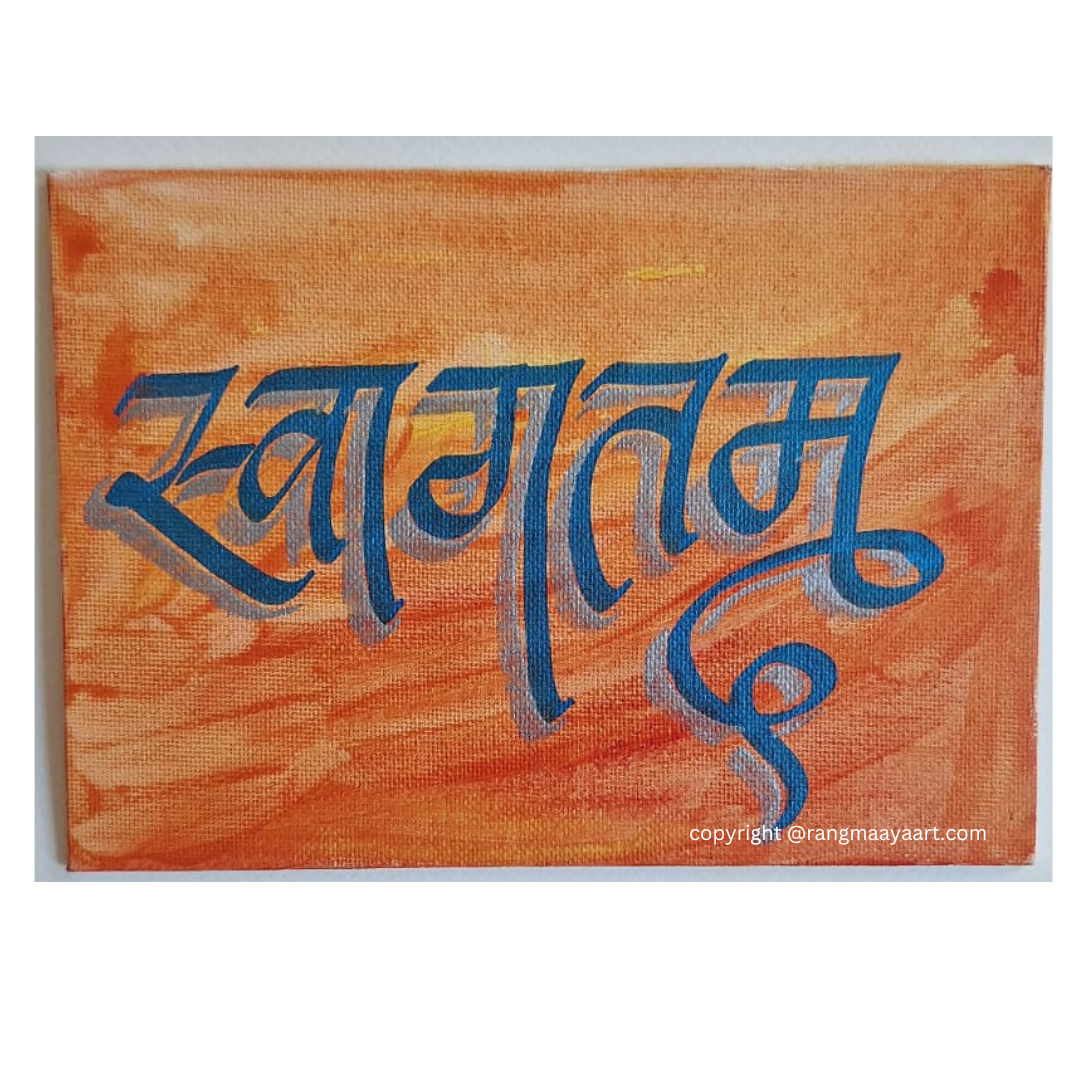 स्वागतम्
copyright @rangmaayaart.com